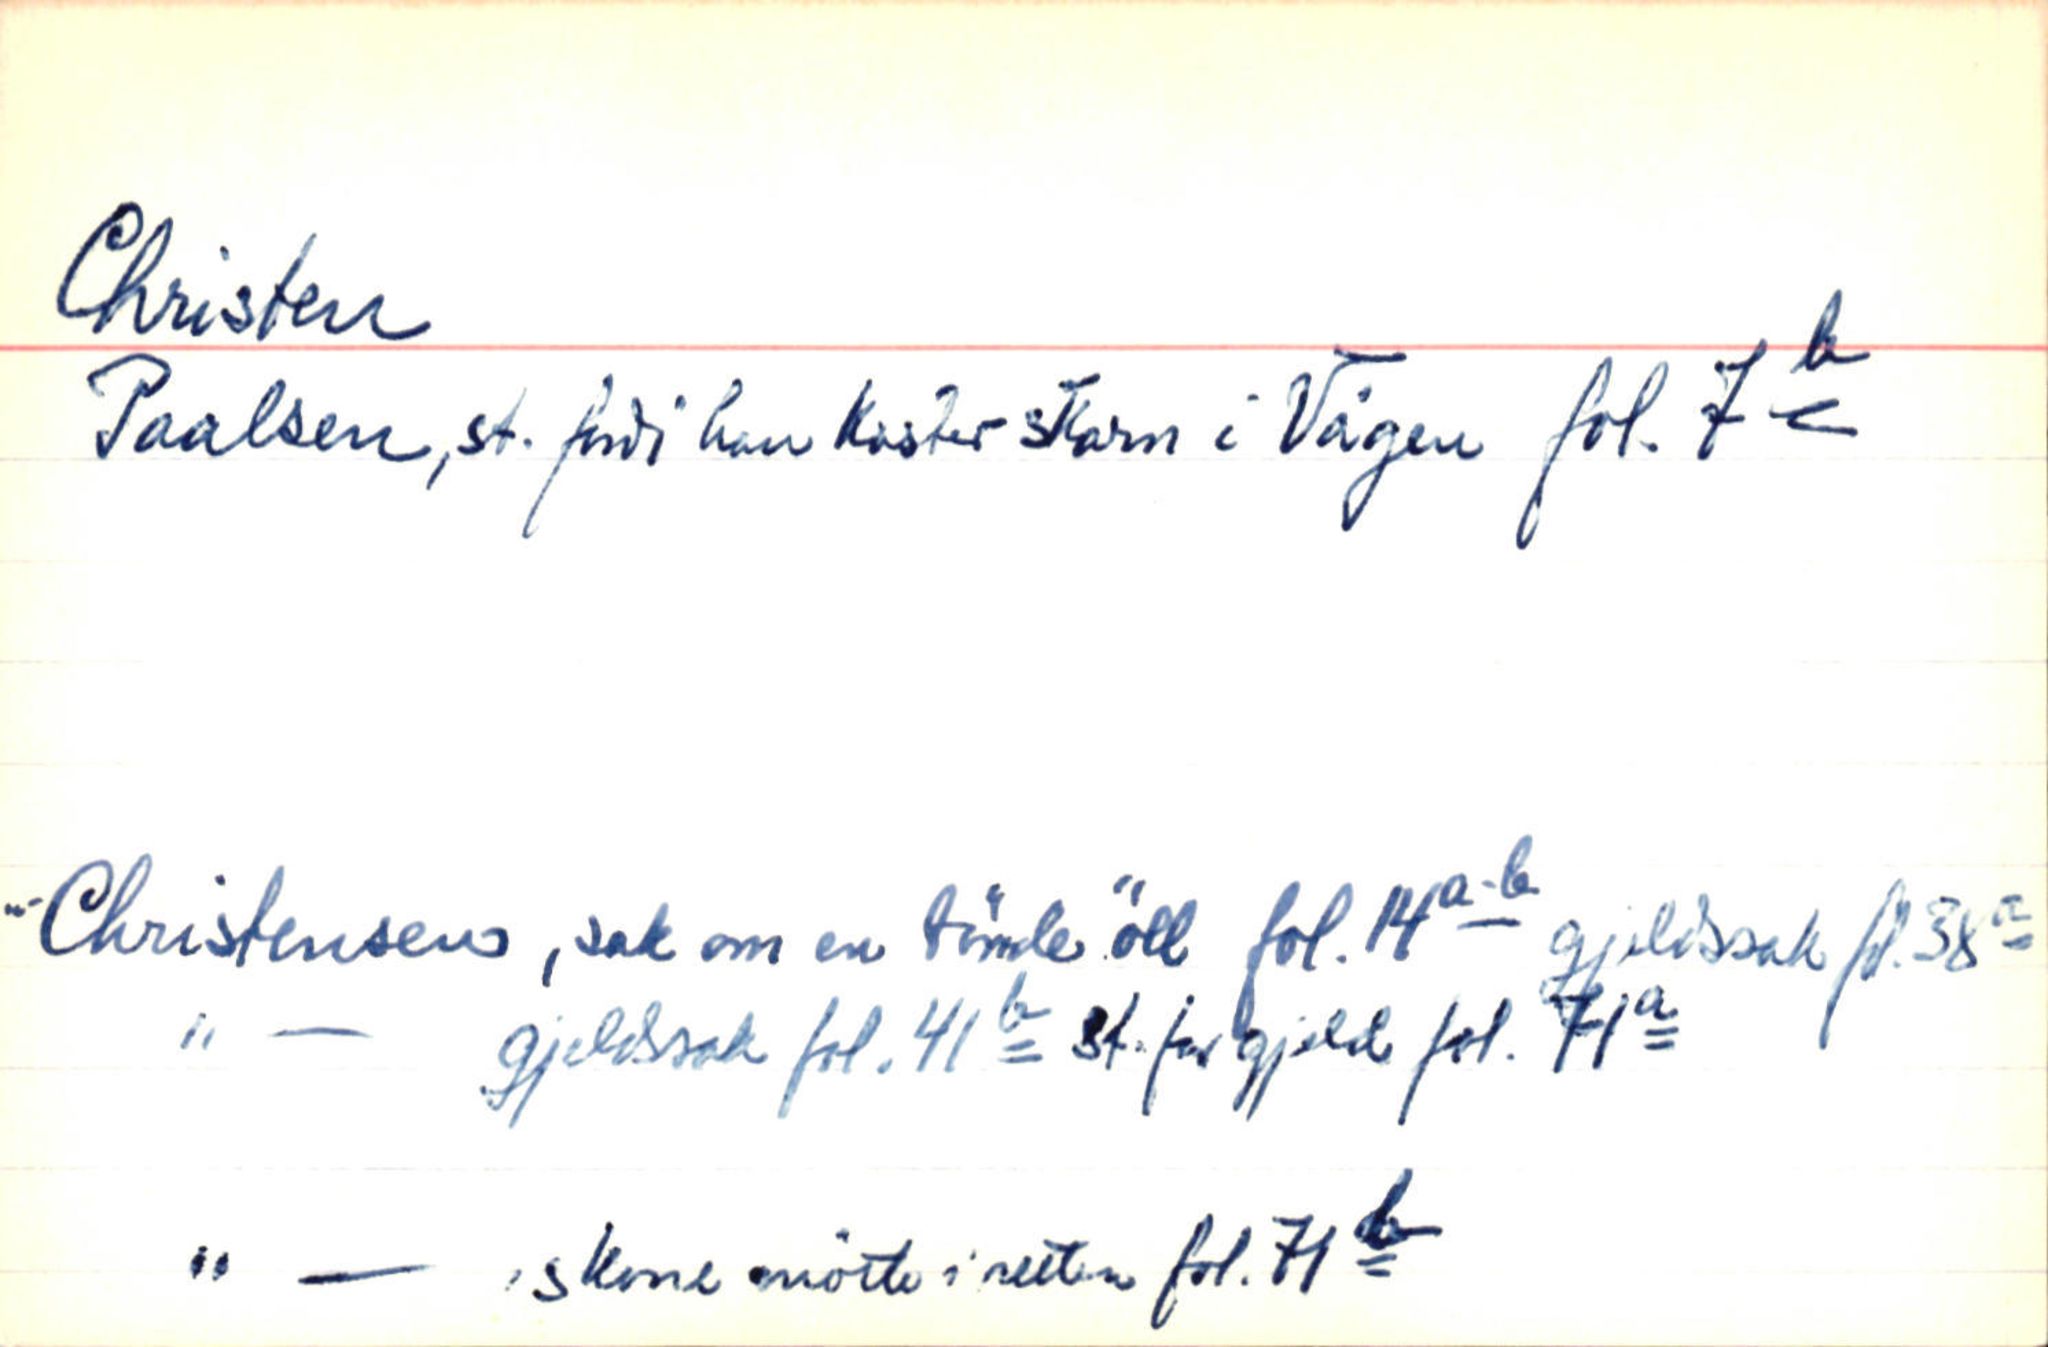 Christen
Paalsen, st. fordi han kaster skarn i Vågen fol. 7 b
"- Christensen, sak om en tünde öll fol. 14 a-b gjeldssak fol. 38 a
" — gjeldssak fol. 41 b st. for gjeld fol. 71 a
" — s kone mötte i retten fol. 71 b